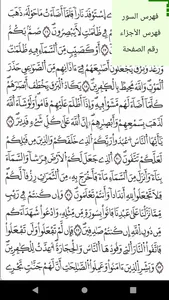 فهرس السور
فهرس الأجزاء
رقم الصفحة
ٱسْتَوْقَدَ نَارًا فَلَمَّآ أَضَآءَتْ مَا حَوْلَهُۥ ذَهَبَ
فِى ظُلُمَٰتٍ لَّا يُبْصِرُونَ ۝ صُمٌّۢ بُكْمٌ
۝ أَوْ كَصَيِّبٍ مِّنَ ٱلسَّمَآءِ فِيهِ ظُلُمَٰتٌ
وَرَعْدٌ وَبَرْقٌ يَجْعَلُونَ أَصَٰبِعَهُمْ فِىٓ ءَاذَانِهِم مِّنَ ٱلصَّوَٰعِقِ حَذَرَ
ٱلْمَوْتِ وَٱللَّهُ مُحِيطٌۢ بِٱلْكَٰفِرِينَ ۝ يَكَادُ ٱلْبَرْقُ يَخْطَفُ أَبْصَٰرَهُمْ
كُلَّمَآ أَضَآءَ لَهُم مَّشَوْا۟ فِيهِ وَإِذَآ أَظْلَمَ عَلَيْهِمْ قَامُوا۟ وَلَوْ شَآءَ ٱللَّهُ
لَذَهَبَ بِسَمْعِهِمْ وَأَبْصَٰرِهِمْ إِنَّ ٱللَّهَ عَلَىٰ كُلِّ شَىْءٍ قَدِيرٌ ۝
يَٰٓأَيُّهَا ٱلنَّاسُ ٱعْبُدُوا۟ رَبَّكُمُ ٱلَّذِى خَلَقَكُمْ وَٱلَّذِينَ مِن قَبْلِكُمْ
لَعَلَّكُمْ تَتَّقُونَ ۝ ٱلَّذِى جَعَلَ لَكُمُ ٱلْأَرْضَ فِرَٰشًا وَٱلسَّمَآءَ
بِنَآءً وَأَنزَلَ مِنَ ٱلسَّمَآءِ مَآءً فَأَخْرَجَ بِهِۦ مِنَ ٱلثَّمَرَٰتِ رِزْقًا لَّكُمْ
فَلَا تَجْعَلُوا۟ لِلَّهِ أَندَادًا وَأَنتُمْ تَعْلَمُونَ ۝ وَإِن كُنتُمْ فِى رَيْبٍ
مِّمَّا نَزَّلْنَا عَلَىٰ عَبْدِنَا فَأْتُوا۟ بِسُورَةٍ مِّن مِّثْلِهِۦ وَٱدْعُوا۟ شُهَدَآءَكُم
مِّن دُونِ ٱللَّهِ إِن كُنتُمْ صَٰدِقِينَ ۝ فَإِن لَّمْ تَفْعَلُوا۟ وَلَن تَفْعَلُوا۟
فَٱتَّقُوا۟ ٱلنَّارَ ٱلَّتِى وَقُودُهَا ٱلنَّاسُ وَٱلْحِجَارَةُ أُعِدَّتْ لِلْكَٰفِرِينَ
۝ وَبَشِّرِ ٱلَّذِينَ ءَامَنُوا۟ وَعَمِلُوا۟ ٱلصَّٰلِحَٰتِ أَنَّ لَهُمْ جَنَّٰتٍ تَجْرِى